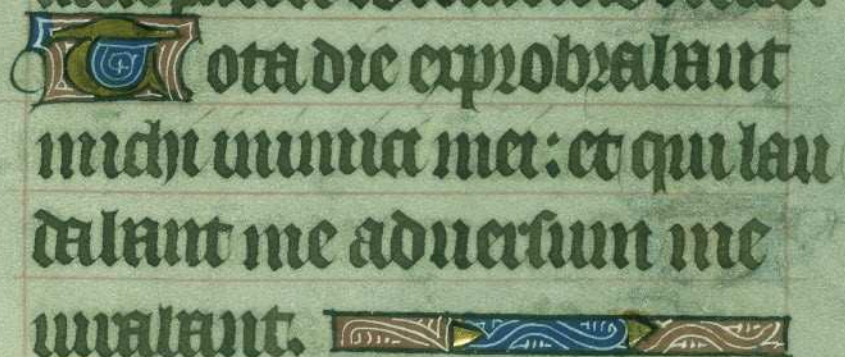 Tota die exprobrabant
michi inimici mei: et qui lau
dabant me adversum me
iurabant.